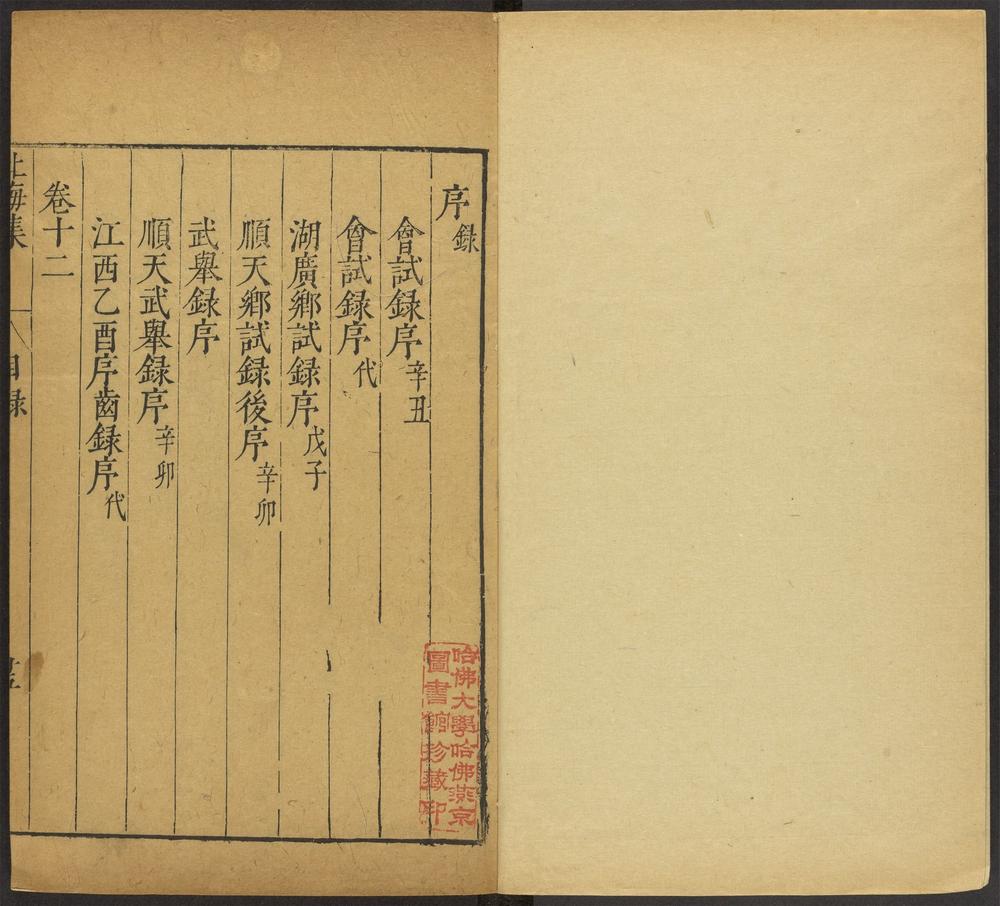 序錄
會試録序辛丑
會試録序代
湖廣鄉試録序戊子
順天鄉試録後序辛卯
武舉録序
順天武舉録序辛卯
江西乙酉序齒録序代
卷十二
北海集
目録
哈佛大學哈佛燕京
圖書館珍藏印